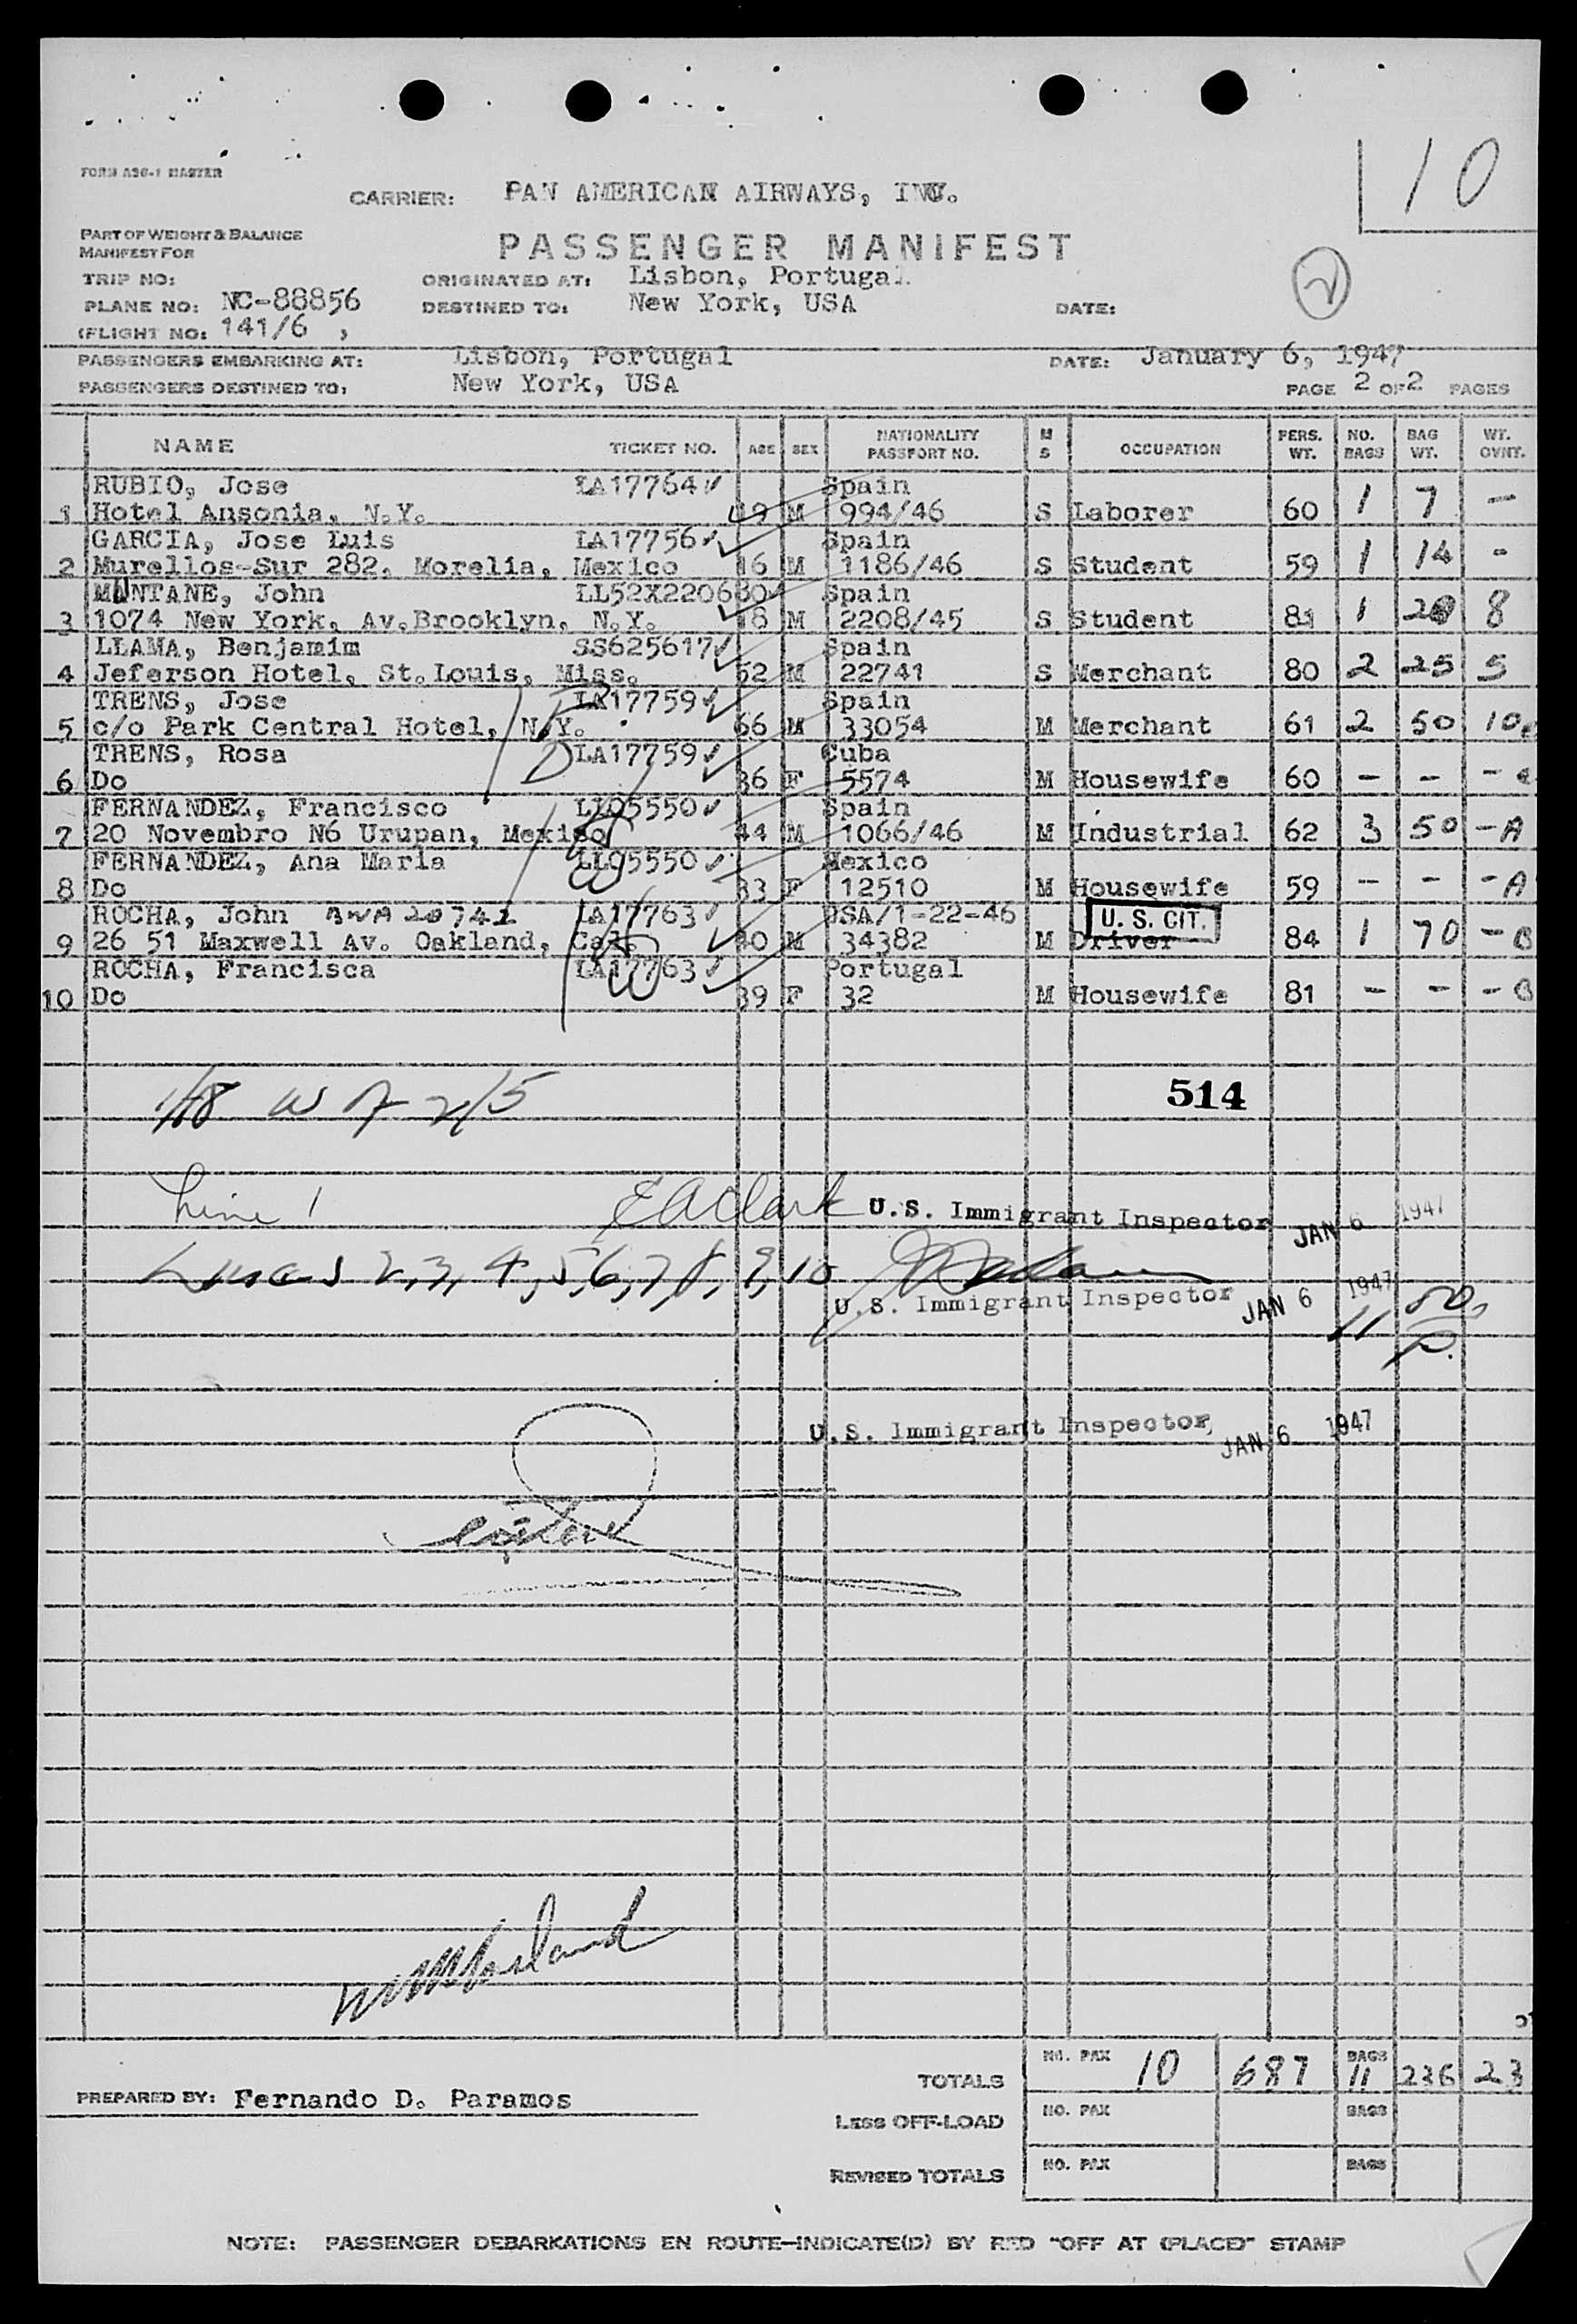 10
FORM A96-1 MASTER
CARRIER: PAN AMERICAN AIRWAYS, INC.
PART OF WEIGHT & BALANCE
MANIFEST FOR
PASSENGER MANIFEST
2
TRIP NO: ORIGINATED AT: Lisbon, Portugal
PLANE NO: NC-88856 DESTINED TO: New York, USA DATE:
(FLIGHT NO: 141/6 )
PASSENGERS EMBARKING AT: Lisbon, Portugal DATE: January 6, 1947
PASSENGERS DESTINED TO: New York, USA PAGE 2 OF 2 PAGES
NAME TICKET NO. AGE SEX NATIONALITY PASSPORT NO. M S OCCUPATION PERS. WT. NO. BAGS BAG WT. WT. OVNT.
RUBIO, Jose LA17764 Spain
1 Hotel Ansonia, N.Y. 19 M 994/46 S Laborer 60 1 7 -
GARCIA, Jose Luis LA17756 Spain
2 Murellos-Sur 282, Morelia, Mexico 16 M 1186/46 S Student 59 1 14 -
MUNTANE, John LL52X220680 Spain
3 1074 New York, Av.Brooklyn, N.Y. 18 M 2208/45 S Student 81 1 20 8
LLAMA, Benjamim SS625617 Spain
4 Jeferson Hotel, St.Louis, Miss. 52 M 22741 S Merchant 80 2 25 5
TRENS, Jose LA17759 Spain
5 c/o Park Central Hotel, N.Y. 66 M 33054 M Merchant 61 2 50 10
TRENS, Rosa LA17759 Cuba
6 Do 36 F 5574 M Housewife 60 - - -
FERNANDEZ, Francisco LL05550 Spain
7 20 Novembro N6 Urupan, Mexico 44 M 1066/46 M Industrial 62 3 50 - A
FERNANDEZ, Ana Maria LL05550 Mexico
8 Do 33 F 12510 M Housewife 59 - - - A
ROCHA, John AWA 20742 LA17763 USA/1-22-46 U. S. CIT.
9 26 51 Maxwell Av. Oakland, Cal. 40 M 34382 M Driver 84 1 70 - B
ROCHA, Francisca LA17763 Portugal
10 Do 39 F 32 M Housewife 81 - - - B
514
Line 1 E A Clark U.S. Immigrant Inspector JAN 6 1947
Lines 2,3,4,5,6,7,8,9,10
U.S. Immigrant Inspector JAN 6 1947
U.S. Immigrant Inspector, JAN 6 1947
TOTALS NO. PAX 10 687 BAGS 11 236 23
PREPARED BY: Fernando D. Paramos
LESS OFF-LOAD NO. PAX BAGS
REVISED TOTALS NO. PAX BAGS
NOTE: PASSENGER DEBARKATIONS EN ROUTE—INDICATE(D) BY RED "OFF AT (PLACE)" STAMP